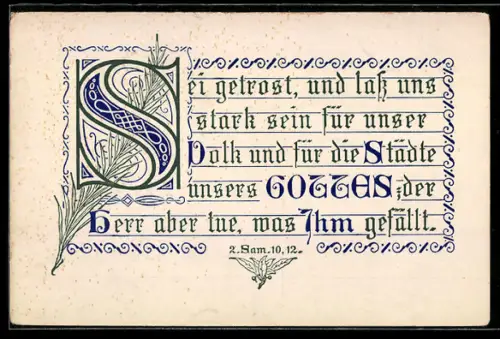 Sei getrost, und laß uns
stark sein für unser
Volk und für die Städte
unsers GOTTES; der
Herr aber tue, was Ihm gefällt.
2. Sam. 10, 12.